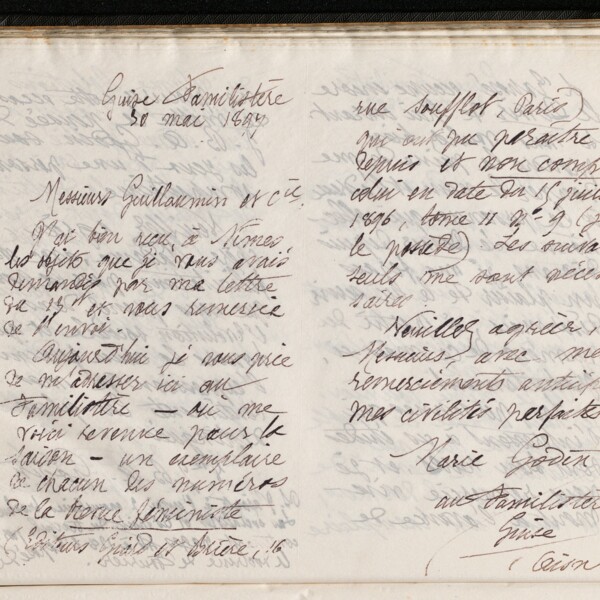 Guise Familistère
30 mai 1897
Messieurs Guillaumin et Cie,
J'ai bien reçu, à Nîmes,
les objets que je vous avais
demandés par ma lettre
du 13 et vous remercie
de l'envoi.
Aujourd'hui je vous prie
de m'adresser ici au
Familistère – où me
voici revenue pour la
saison – un exemplaire
de chacun des numéros
de la Revue féministe
Editeurs Giard et Brière, 16
rue Soufflot, Paris)
qui ont pu paraître
depuis et non comp
celui en date du 15 juin
1896, tome II n° 9 (j
le possède) Les suiva
seuls me sont néces
saires
Veuillez agréer,
Messieurs, avec me
remerciements anticip
mes civilités parfaite
Marie Godin
au Familistère
Guise
(Aisn